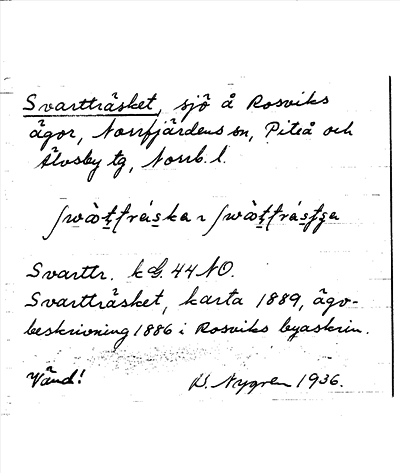 Svartträsket, sjö å Rosviks
ägor, Norrfjärdens sn, Piteå och
Älvsby tg, Norrb. l.
Svarttr. kbl. 44 NO.
Svartträsket, karta 1889, ägo-
beskrivning 1886 i Rosviks byaskrin.
Vänd! H. Nygren 1936.